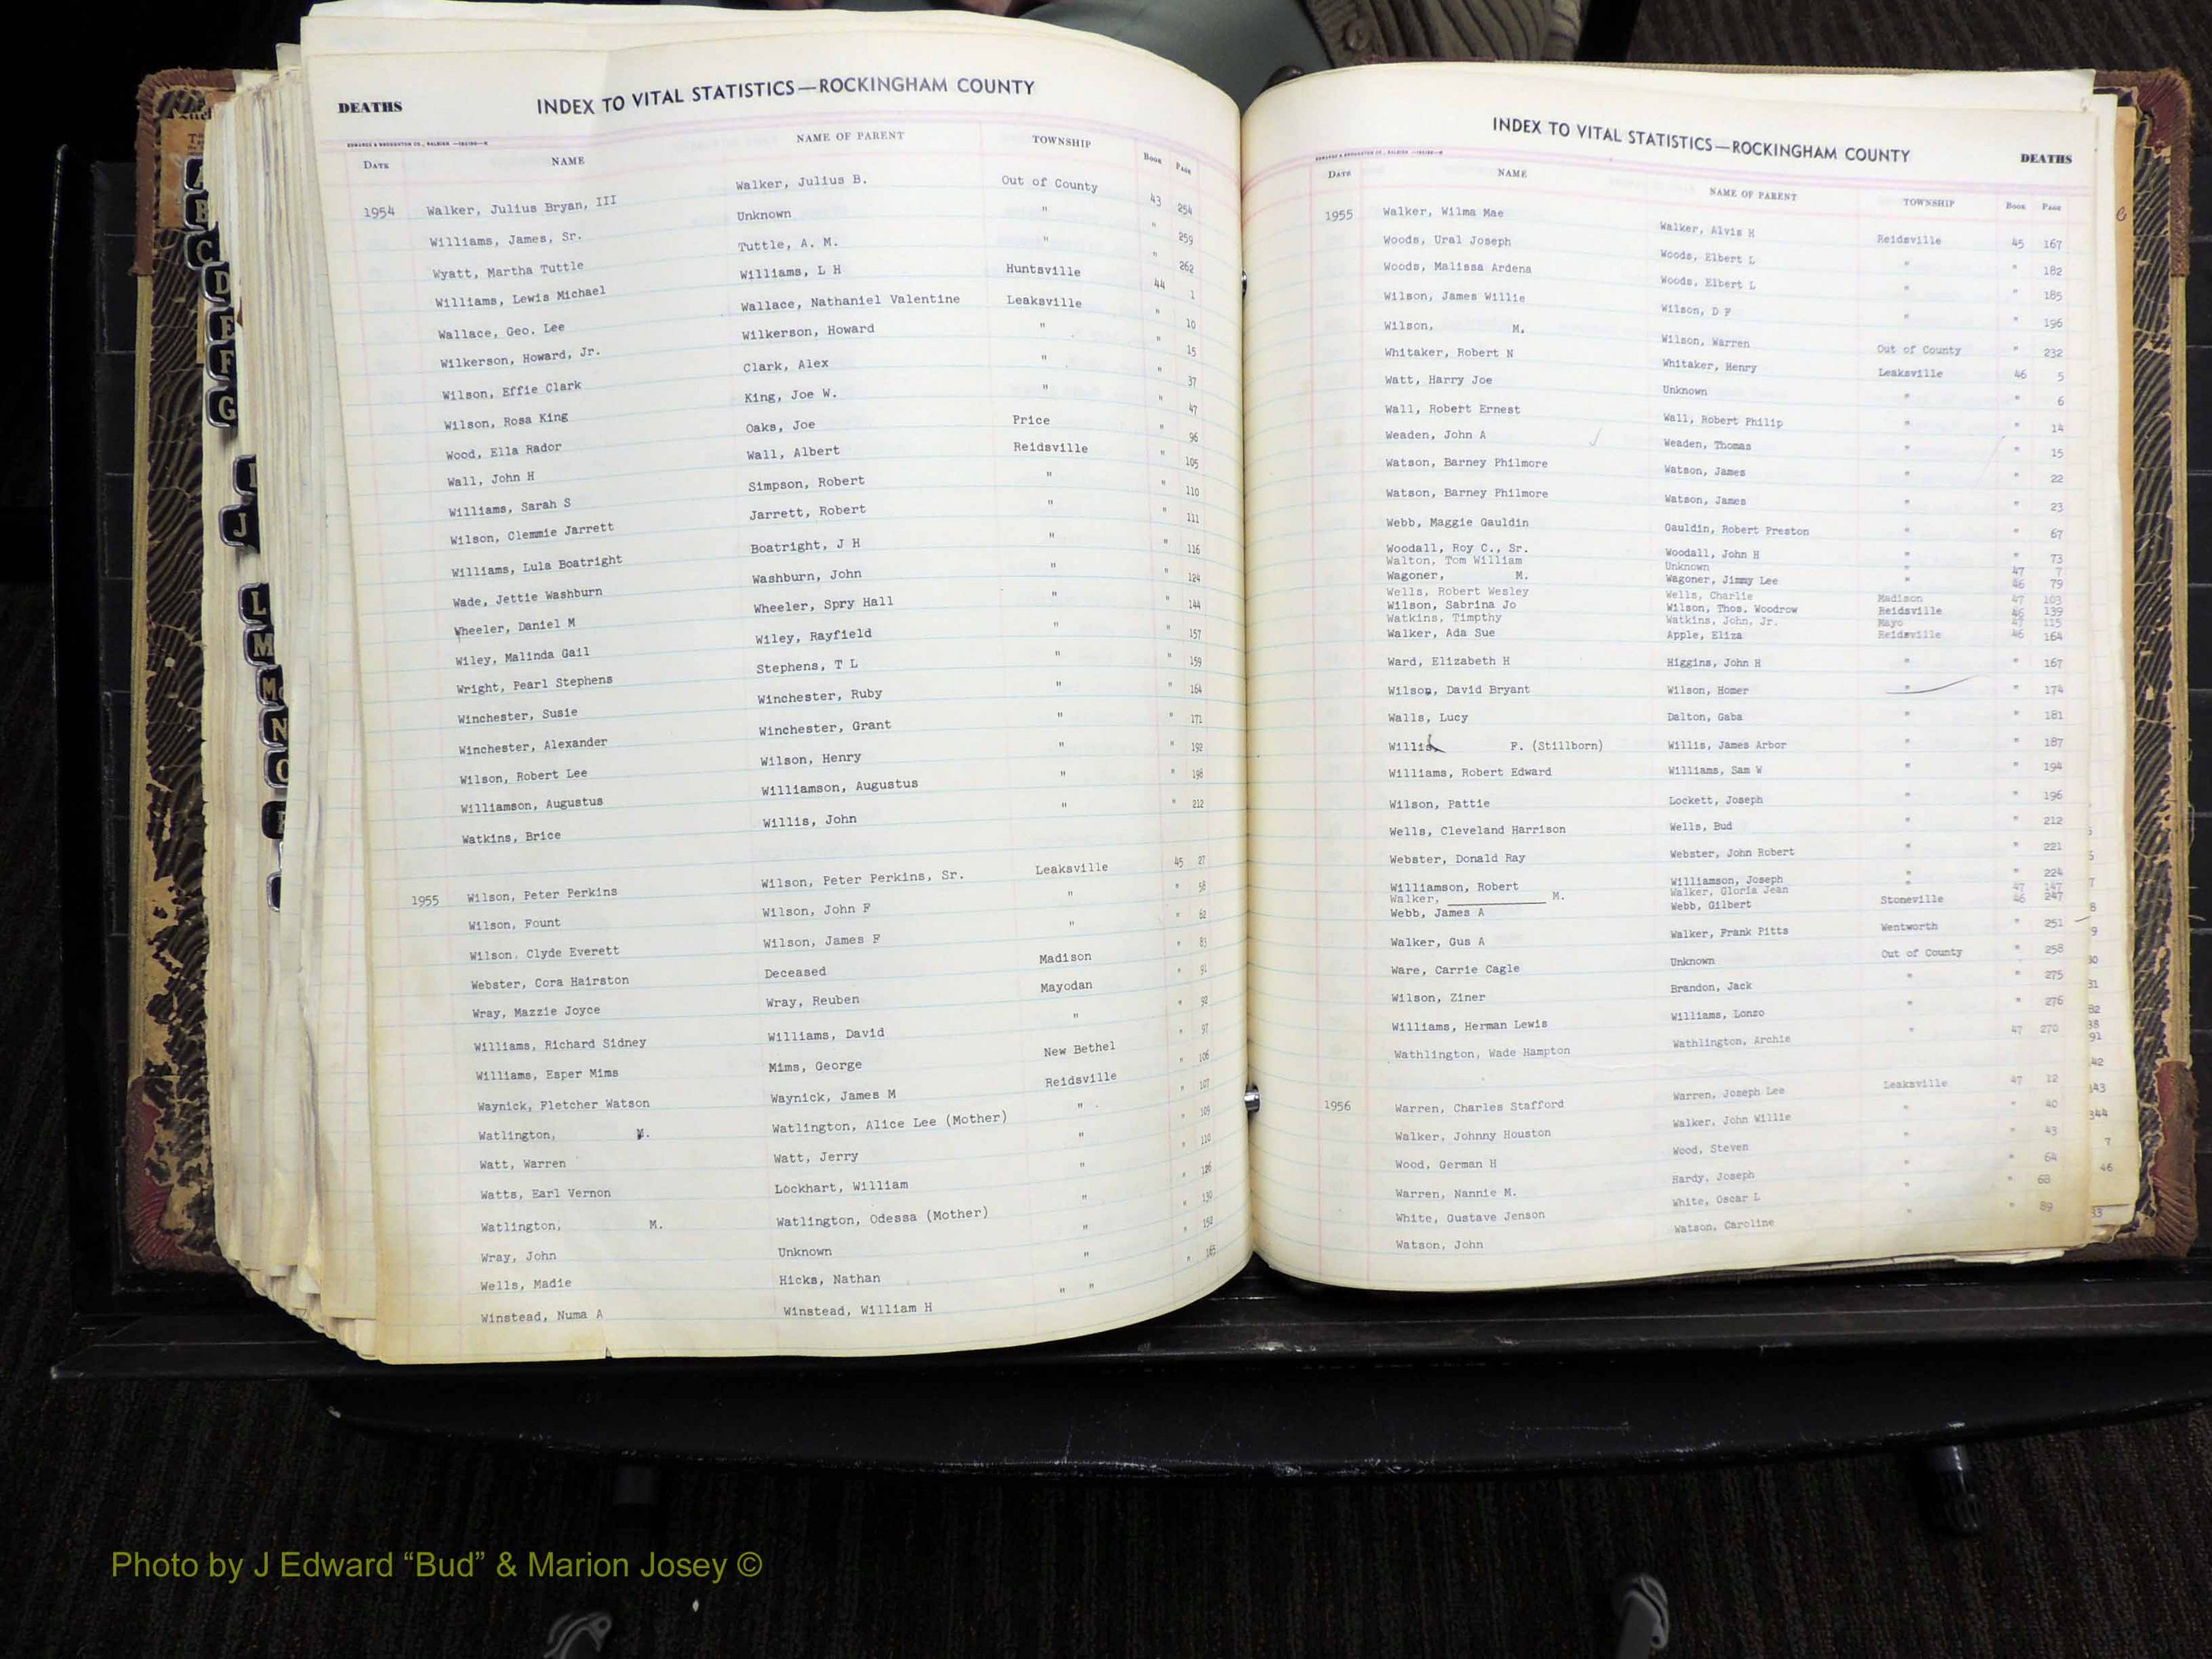 DEATHS INDEX TO VITAL STATISTICS—ROCKINGHAM COUNTY
DATE NAME NAME OF PARENT TOWNSHIP Book Page
1954 Walker, Julius Bryan, III Walker, Julius B. Out of County 43 254
Williams, James, Sr. Unknown " " 259
Wyatt, Martha Tuttle Tuttle, A. M. " " 262
Williams, Lewis Michael Williams, L H Huntsville 44 1
Wallace, Geo. Lee Wallace, Nathaniel Valentine Leaksville " 10
Wilkerson, Howard, Jr. Wilkerson, Howard " " 15
Wilson, Effie Clark Clark, Alex " " 37
Wilson, Rosa King King, Joe W. " " 47
Wood, Ella Rador Oaks, Joe Price " 96
Wall, John H Wall, Albert Reidsville " 105
Williams, Sarah S Simpson, Robert " " 110
Wilson, Clemmie Jarrett Jarrett, Robert " " 111
Williams, Lula Boatright Boatright, J H " " 116
Wade, Jettie Washburn Washburn, John " " 124
Wheeler, Daniel M Wheeler, Spry Hall " " 144
Wiley, Malinda Gail Wiley, Rayfield " " 157
Wright, Pearl Stephens Stephens, T L " " 159
Winchester, Susie Winchester, Ruby " " 164
Winchester, Alexander Winchester, Grant " " 171
Wilson, Robert Lee Wilson, Henry " " 192
Williamson, Augustus Williamson, Augustus " " 198
Watkins, Brice Willis, John " " 212
1955 Wilson, Peter Perkins Wilson, Peter Perkins, Sr. Leaksville 45 27
Wilson, Fount Wilson, John F " " 58
Wilson. Clyde Everett Wilson, James F " " 62
Webster, Cora Hairston Deceased Madison " 83
Wray, Mazzie Joyce Wray, Reuben Mayodan " 91
Williams, Richard Sidney Williams, David " " 92
Williams, Esper Mims Mims, George New Bethel " 97
Waynick, Fletcher Watson Waynick, James M Reidsville " 106
Watlington, M. Watlington, Alice Lee (Mother) " " 107
Watt, Warren Watt, Jerry " " 109
Watts, Earl Vernon Lockhart, William " " 110
Watlington, M. Watlington, Odessa (Mother) " " 126
Wray, John Unknown " " 130
Wells, Madie Hicks, Nathan " " 152
Winstead, Numa A Winstead, William H " " " 165
INDEX TO VITAL STATISTICS—ROCKINGHAM COUNTY DEATHS
DATE NAME NAME OF PARENT TOWNSHIP Book Page
1955 Walker, Wilma Mae Walker, Alvis H Reidsville 45 167
Woods, Ural Joseph Woods, Elbert L " " 182
Woods, Malissa Ardena Woods, Elbert L " " 185
Wilson, James Willie Wilson, D F " " 196
Wilson, M. Wilson, Warren Out of County " 232
Whitaker, Robert N Whitaker, Henry Leaksville 46 5
Watt, Harry Joe Unknown " " 6
Wall, Robert Ernest Wall, Robert Philip " " 14
Weaden, John A Weaden, Thomas " " 15
Watson, Barney Philmore Watson, James " " 22
Watson, Barney Philmore Watson, James " " 23
Webb, Maggie Gauldin Gauldin, Robert Preston " " 67
Woodall, Roy C., Sr. Woodall, John H " " 73
Walton, Tom William Unknown " 47 7
Wagoner, M. Wagoner, Jimmy Lee " 46 79
Wells, Robert Wesley Wells, Charlie Madison 47 103
Wilson, Sabrina Jo Wilson, Thos. Woodrow Reidsville 46 139
Watkins, Timpthy Watkins, John, Jr. Mayo 47 115
Walker, Ada Sue Apple, Eliza Reidsville 46 164
Ward, Elizabeth H Higgins, John H " " 167
Wilson, David Bryant Wilson, Homer " " 174
Walls, Lucy Dalton, Gaba " " 181
Willis, F. (Stillborn) Willis, James Arbor " " 187
Williams, Robert Edward Williams, Sam W " " 194
Wilson, Pattie Lockett, Joseph " " 196
Wells, Cleveland Harrison Wells, Bud " " 212
Webster, Donald Ray Webster, John Robert " " 221
Williamson, Robert Williamson, Joseph " " 224
Walker, M. Walker, Gloria Jean " 47 147
Webb, James A Webb, Gilbert Stoneville 46 247
Walker, Gus A Walker, Frank Pitts Wentworth " 251
Ware, Carrie Cagle Unknown Out of County " 258
Wilson, Ziner Brandon, Jack " " 275
Williams, Herman Lewis Williams, Lonzo " " 276
Wathlington, Wade Hampton Wathlington, Archie " 47 270
1956 Warren, Charles Stafford Warren, Joseph Lee Leaksville 47 12
Walker, Johnny Houston Walker, John Willie " " 40
Wood, German H Wood, Steven " " 43
Warren, Nannie M. Hardy, Joseph " " 64
White, Gustave Jenson White, Oscar L " " 68
Watson, John Watson, Caroline " " 89
Photo by J Edward “Bud” & Marion Josey ©